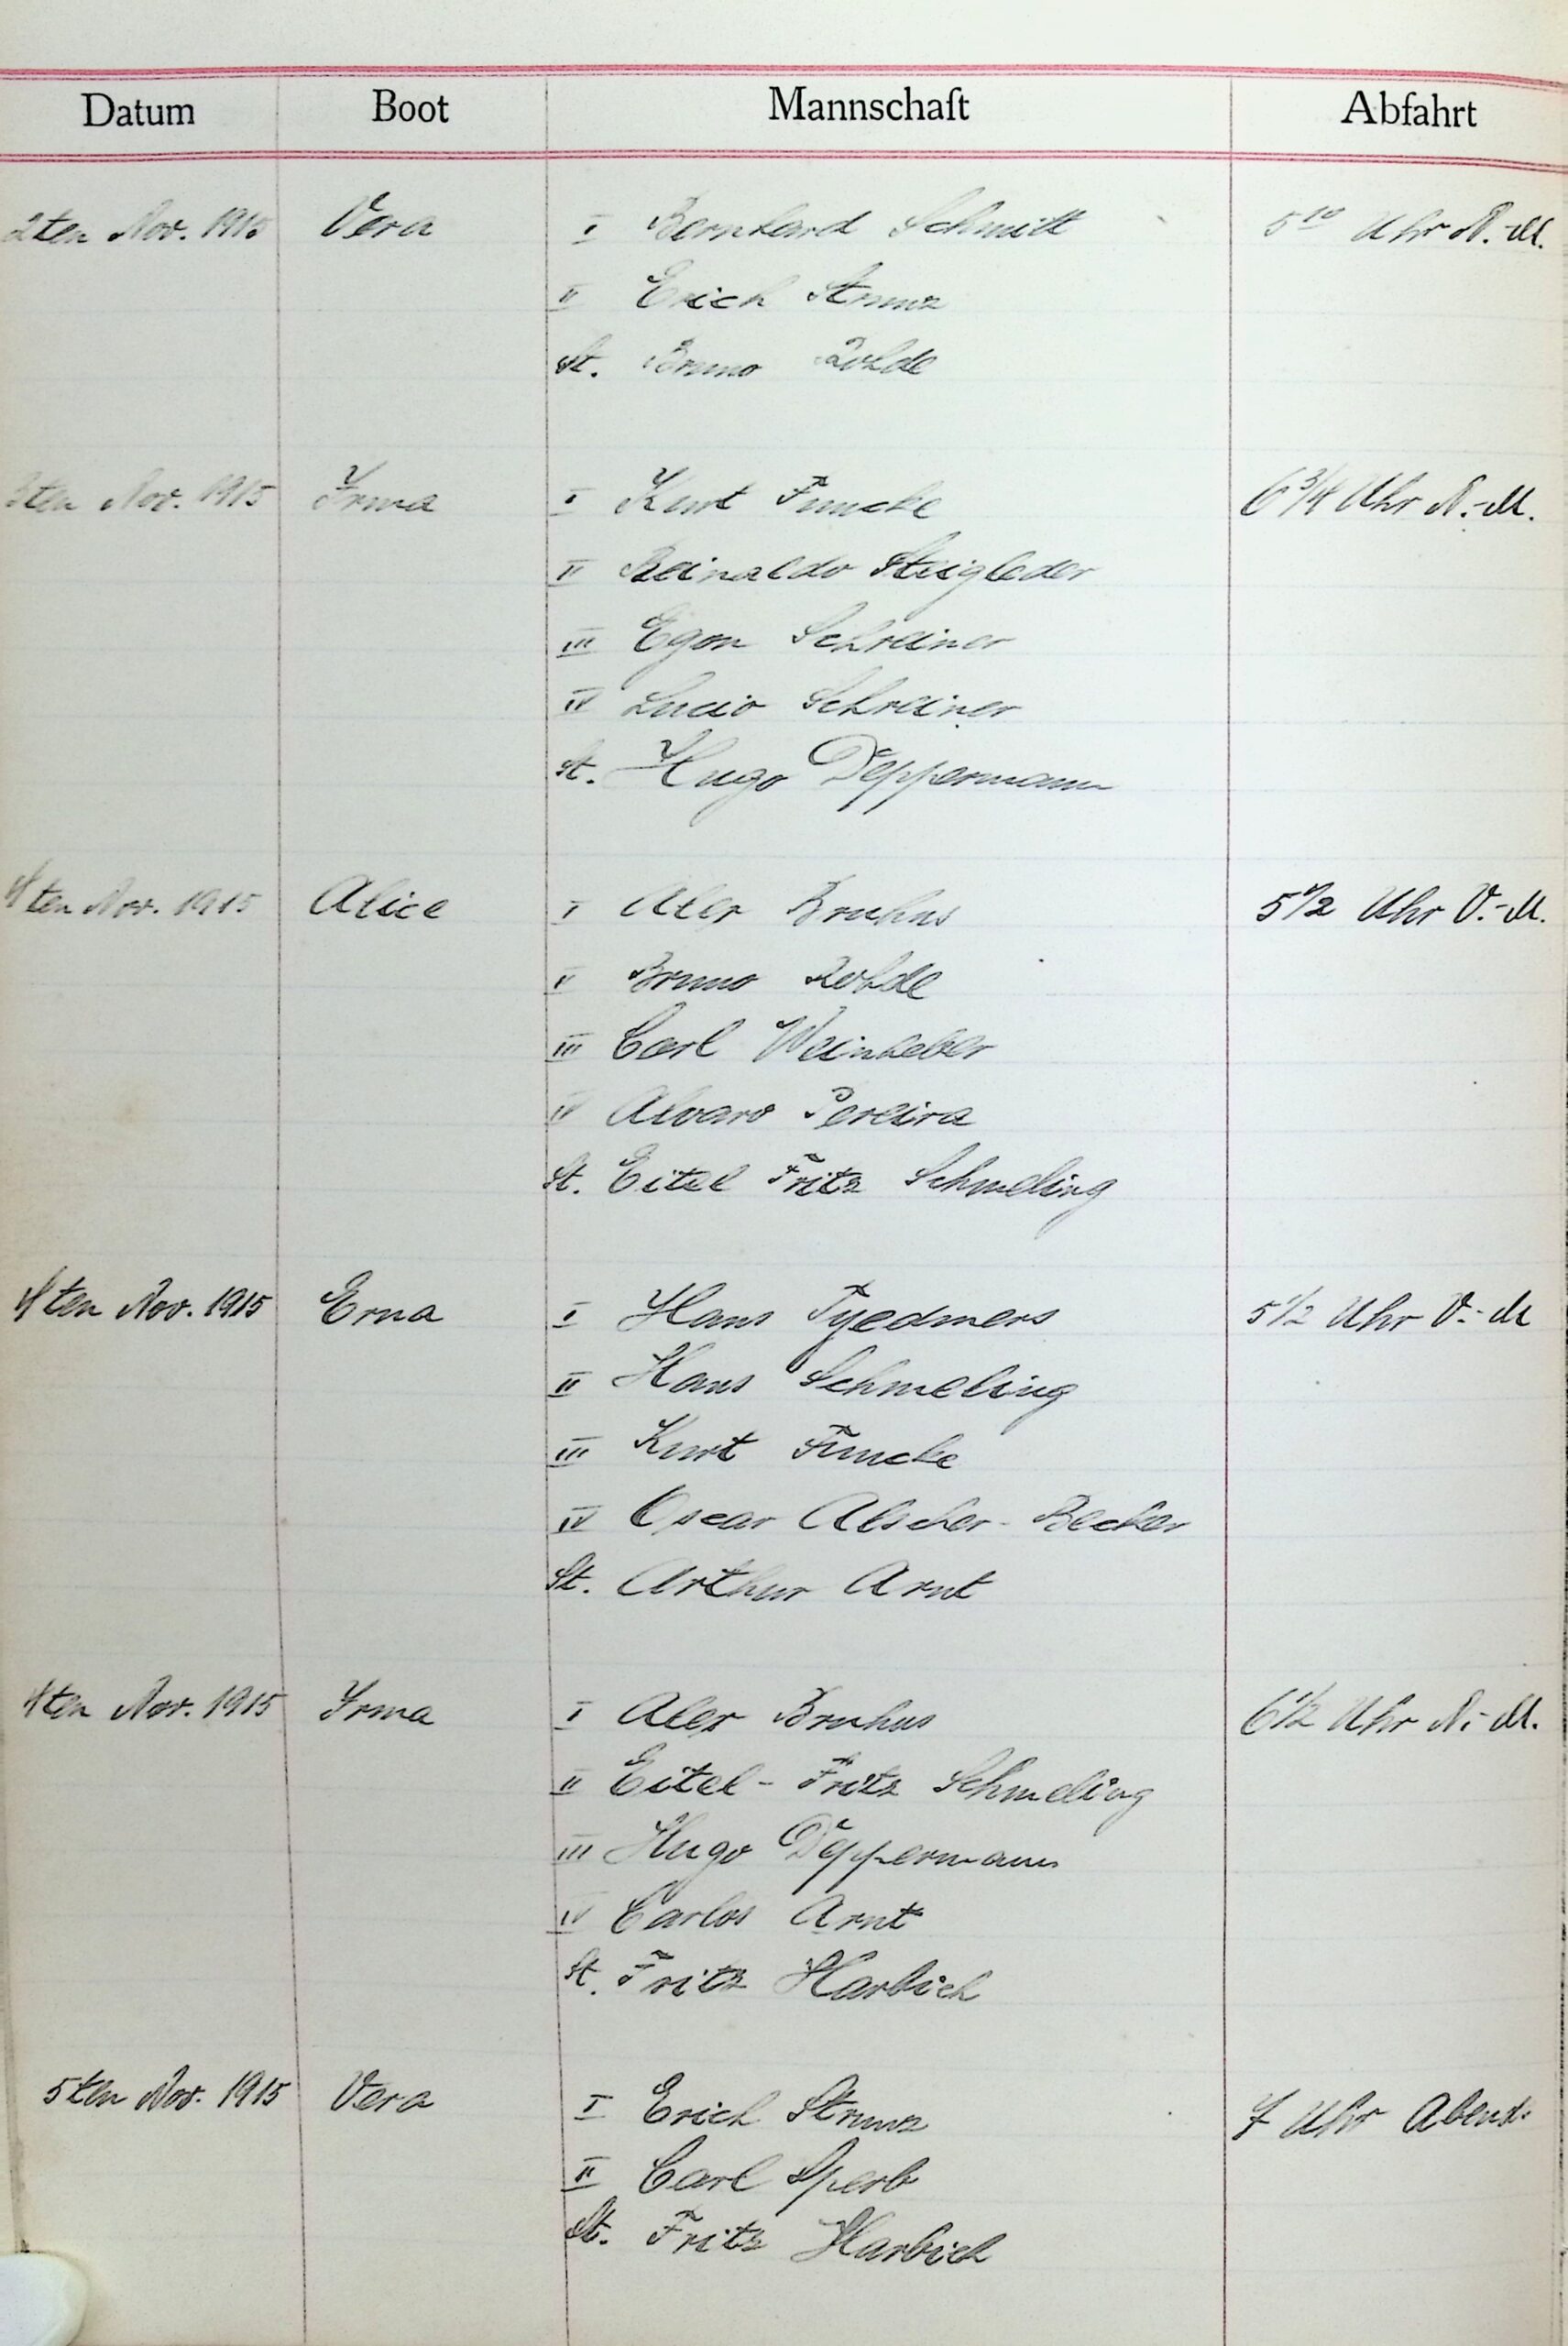 Datum Boot Mannschaft Abfahrt
2ten Nov. 1915 Vera I Bernhard Schmitt 5 10 Uhr N.-M.
II Erich Strunz
St. Bruno Rohde
3ten Nov. 1915 Irma I Kurt Funcke 6 3/4 Uhr N.-M.
II Reinaldo Steigleder
III Egon Schreiner
IV Lucio Schreiner
St. Hugo Deppermann
4ten Nov. 1915 Alice I Alex Bruhns 5 1/2 Uhr V.-M.
II Bruno Rohde
III Carl Weinheber
IV Alvaro Pereira
St. Eitel Fritz Schmeling
4ten Nov. 1915 Erna I Hans Tjedmers 5 1/2 Uhr V.-M
II Hans Schmeling
III Kurt Funcke
IV Oscar Alscher-Becker
St. Arthur Arnt
4ten Nov. 1915 Irma I Alex Bruhns 6 1/2 Uhr N.-M.
II Eitel-Fritz Schmeling
III Hugo Deppermann
IV Carlos Arnt
St. Fritz Harbich
5ten Nov. 1915 Vera I Erich Strunz 7 Uhr Abends
II Carl Sperb
St. Fritz Harbich